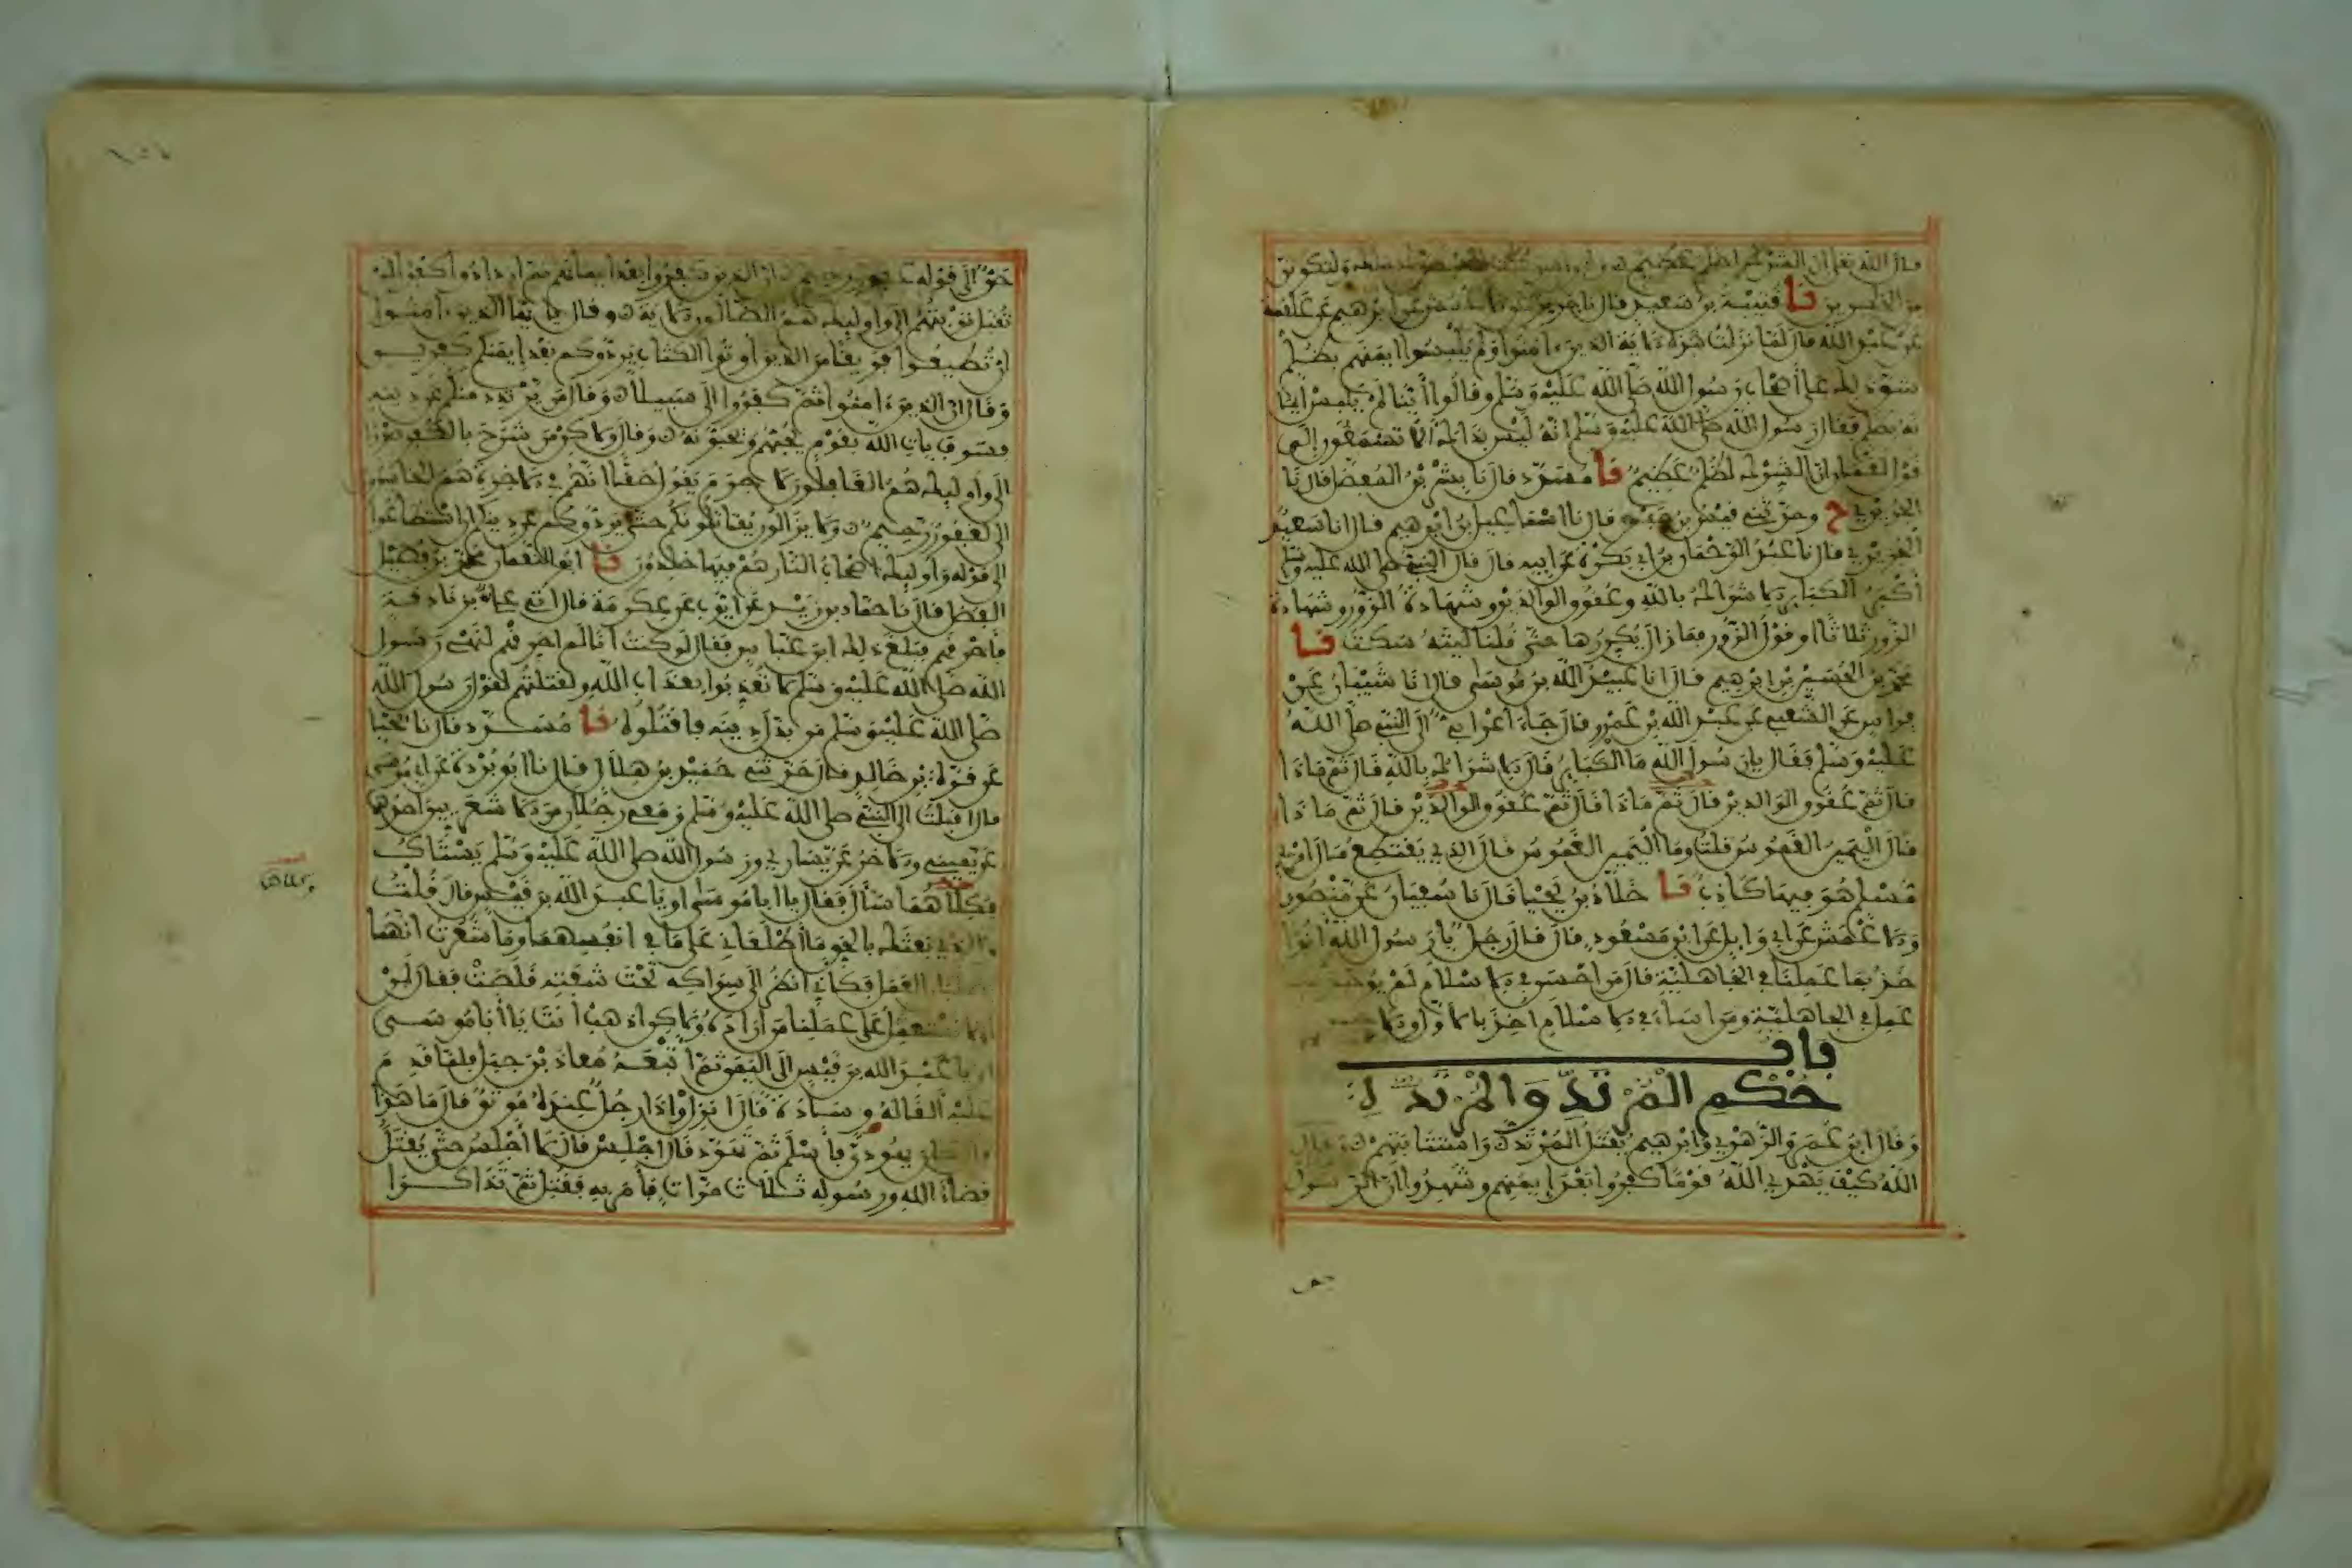 قال الله تعلى ان الشرك لظلم عظيم لئن اشركت ليحبطن عملك ولتكونن
من الخسرين نا قتيبة بن سعيد قال نا جرير عن الاعمش عن ابرهيم عن علقمة
عن عبد الله قال لما نزلت هذه الاية الذين ءامنوا ولم يلبسوا ايمنهم بظلم
شق ذلك على أصحاب رسول الله صلى الله عليه وسلم وقالوا أينا لم يلبس ايما
نه بظلم فقال رسول الله صلى الله عليه وسلم انه ليس بذلك الا تسمعون إلى
قول لقمان ان الشرك لظلم عظيم نا مسدد قال نا بشر بن المفضل قال نا
الجريري ح وحدثني قيس بن حفص قال نا اسماعيل بن ابرهيم قال انا سعيد
الجريري قال نا عبد الرحمان بن ابي بكرة عن ابيه قال قال النبي صلى الله عليه وسلم
أكبر الكباير الاشراك بالله وعقوق الوالدين وشهادة الزور وشهادة
الزور ثلاثا او قول الزور فما زال يكررها حتى قلنا ليته سكت نا
محمد بن الحسين بن ابرهيم قال انا عبيد الله بن موسى قال انا شيبان عن
فراس عن الشعبي عن عبد الله بن عمرو قال جاء اعرابي إلى النبي صلى الله
عليه وسلم فقال يا رسول الله ما الكباير قال الاشراك بالله قال ثم ماذا
قال ثم عقوق الوالدين قال ثم ماذا قال ثم عقوق الوالدين قال ثم ماذا
قال اليمين الغموس قلت وما اليمين الغموس قال الذي يقتطع مال امرئ
مسلم هو فيها كاذب نا خلاد بن يحيا قال نا سفيان عن منصور
والاعمش عن ابي وايل عن ابن مسعود قال قال رجل يا رسول الله انوا
خذ بما عملنا في الجاهلية قال من احسن في الاسلام لم يوخذ بما
عمل في الجاهلية ومن اساء في الاسلام اخذ بالاول والاخر
باب
حكم المرتد والمرتدة
وقال ابن عمر والزهري وابرهيم يقتل المرتد واستتابتهم وقال
الله كيف يهدي الله قوما كفروا بعد إيمنهم وشهدوا ان الرسول
حق إلى قوله غفور رحيم ان الذين كفروا بعد ايمانهم ثم ازدادوا كفرا لن
تقبل توبتهم إلى واوليك هم الضالون الاية وقال يا يها الذين ءامنوا
ان تطيعوا فريقا من الذين اوتوا الكتاب يردوكم بعد إيمنكم كفرين
وقال ان الذين ءامنوا ثم كفروا إلى سبيلا وقال من يرتدد منكم عن دينه
فسوف ياتي الله بقوم يحبهم ويحبونه وقال ولاكن من شرح بالكفر صدرا
الى واوليك هم الغافلون لا جرم يقول حقا انهم في الاخرة هم الخاسرون
الى لغفور رحيم ولا يزالون يقاتلونكم حتى يردوكم عن دينكم ان استطاعوا
الى قوله واوليك اصحاب النار هم فيها خلدون نا ابو النعمان محمد بن الفضل
الفضل قال نا حماد بن زيد عن ايوب عن عكرمة قال اتي علي بزنادقة
فأحرقهم فبلغ ذلك ابن عباس فقال لو كنت انا لم احرقهم لنهي رسول
الله صلى الله عليه وسلم لا تعذبوا بعذاب الله ولقتلتهم لقول رسول الله
صلى الله عليه وسلم من بدل دينه فاقتلوه نا مسدد قال نا يحيا
عن قرة بن خالد قال حدثني حميد بن هلال قال نا ابو بردة عن ابي موسى
قال اقبلت الى النبي صلى الله عليه وسلم ومعي رجلان من الاشعريين احدهما
عن يميني والاخر عن يساري ورسول الله صلى الله عليه وسلم يستاك
فكلاهما سأل فقال يا ابا موسى او يا عبد الله بن قيس قال قلت
والذي بعثك بالحق ما أطلعاني على ما في انفسهما وما شعرت انهما
يطلبان العمل فكأني انظر الى سواكه تحت شفته قلصت فقال لن
او لا نستعمل على عملنا من اراده ولاكن اذهب أنت يا أبا موسى
او يا عبد الله بن قيس إلى اليمن ثم اتبعه معاذ بن جبل فلما قدم
عليه ألقا له وسادة قال انزل واذا رجل عنده موثق قال ما هذا
قال كان يهوديا فأسلم ثم تهود قال اجلس قال لا أجلس حتى يقتل
قضاء الله ورسوله ثلاث مرات فأمر به فقتل ثم تذاكرا